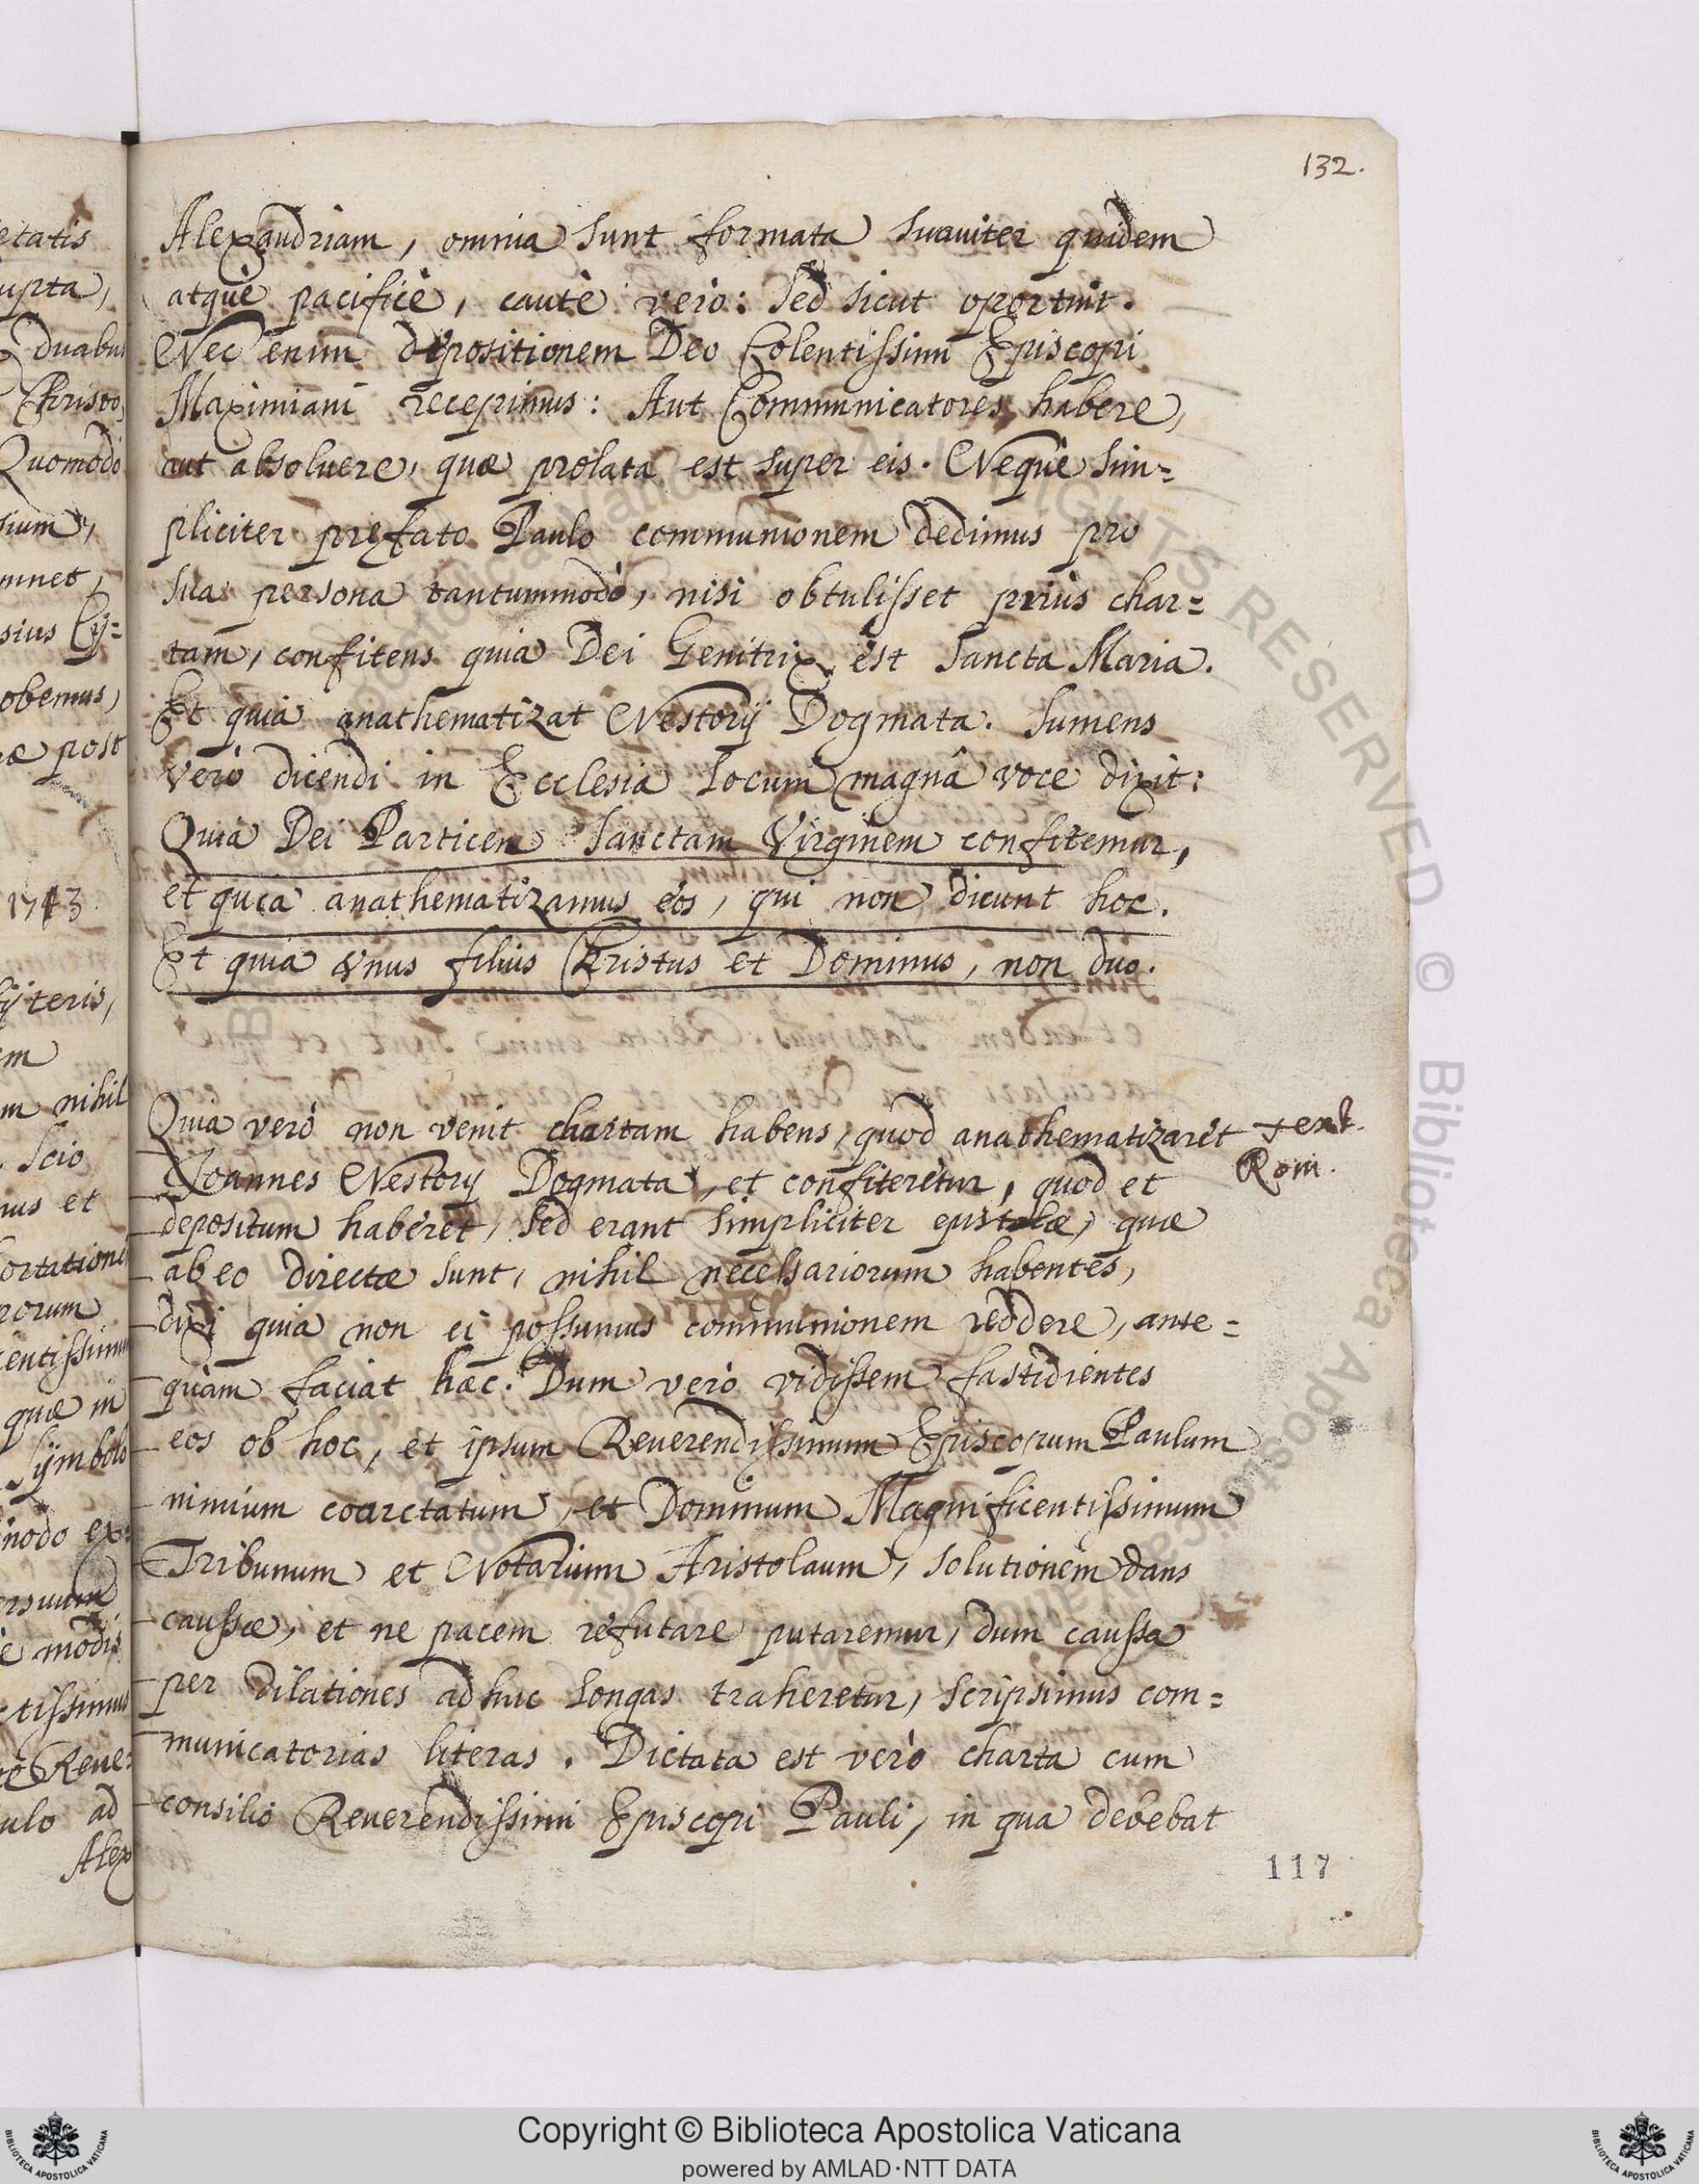 132.
Alexandriam, omnia sunt formata suauiter quidem
atquè pacificè, cautè verò: sed sicut oportuit.
Nec enim depositionem Deo Colentissimi Episcopi
Maximiani recepimus: Aut Communicatores habere,
aut absoluere, quæ prolata est super eis. Nequè sim=
pliciter prefato Paulo communionem dedimus pro
sua persona tantummodò, nisi obtulisset priùs char=
tam, confitens quia Dei Genitrix est Sancta Maria.
Et quia anathematizat Nestorij Dogmata. Sumens
verò dicendi in Ecclesia locum magnâ voce dixit:
Quia Dei Particem Sanctam Virginem confitemur,
et quia anathematizamus eos, qui non dicunt hoc.
Et quia vnus filius Christus et Dominus, non duo.
Quia verò non venit chartam habens, quod anathematizaret
Ioannes Nestorij Dogmata, et confiteretur, quod et
depositum haberet, sed erant simpliciter epistolæ, quæ
ab eo directæ sunt, nihil necessariorum habentes,
dixi quia non ei possumus communionem reddere, ante=
quàm faciat hæc. Dum verò vidissem fastidientes
eos ob hoc, et ipsum Reuerendissimum Episcopum Paulum
nimium coarctatum, et Dominum Magnificentissimum
Tribunum et Notarium Aristolaum, solutionem dans
caussæ, et ne pacem refutare putaremur, dum caussa
per dilationes adhuc longas traheretur, scripsimus com=
municatorias literas. Dictata est verò charta cum
consilio Reuerendissimi Episcopi Pauli, in qua debebat
text.
Rom.
117
etatis
upta,
duabus
Christo
Quomodo
sium,
mnet,
sius Cy=
obemus,
æ post
1743
ijteris,
em
m nihil
. Scio
mus et
ortatione
rorum
centissimu
quæ in
symbolo
inodo ex=
ersuum
è modis
tissimus
Reue=
ulo ad
Alex
Copyright © Biblioteca Apostolica Vaticana
powered by AMLAD·NTT DATA